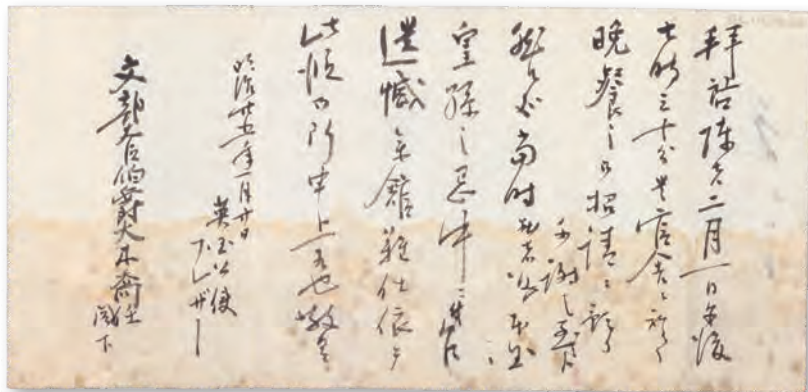 拝啓陳者二月一日午後
七時三十分貴官舎ニ於テ
晩餐之御招請ニ預リ
謝之至
当時
皇孫之忌中ニ
遺憾参館難仕依テ
此段御断申上候也敬具
明治廿五年一月廿日
英国公使
フレザー
文部大臣伯爵大木喬任
閣下